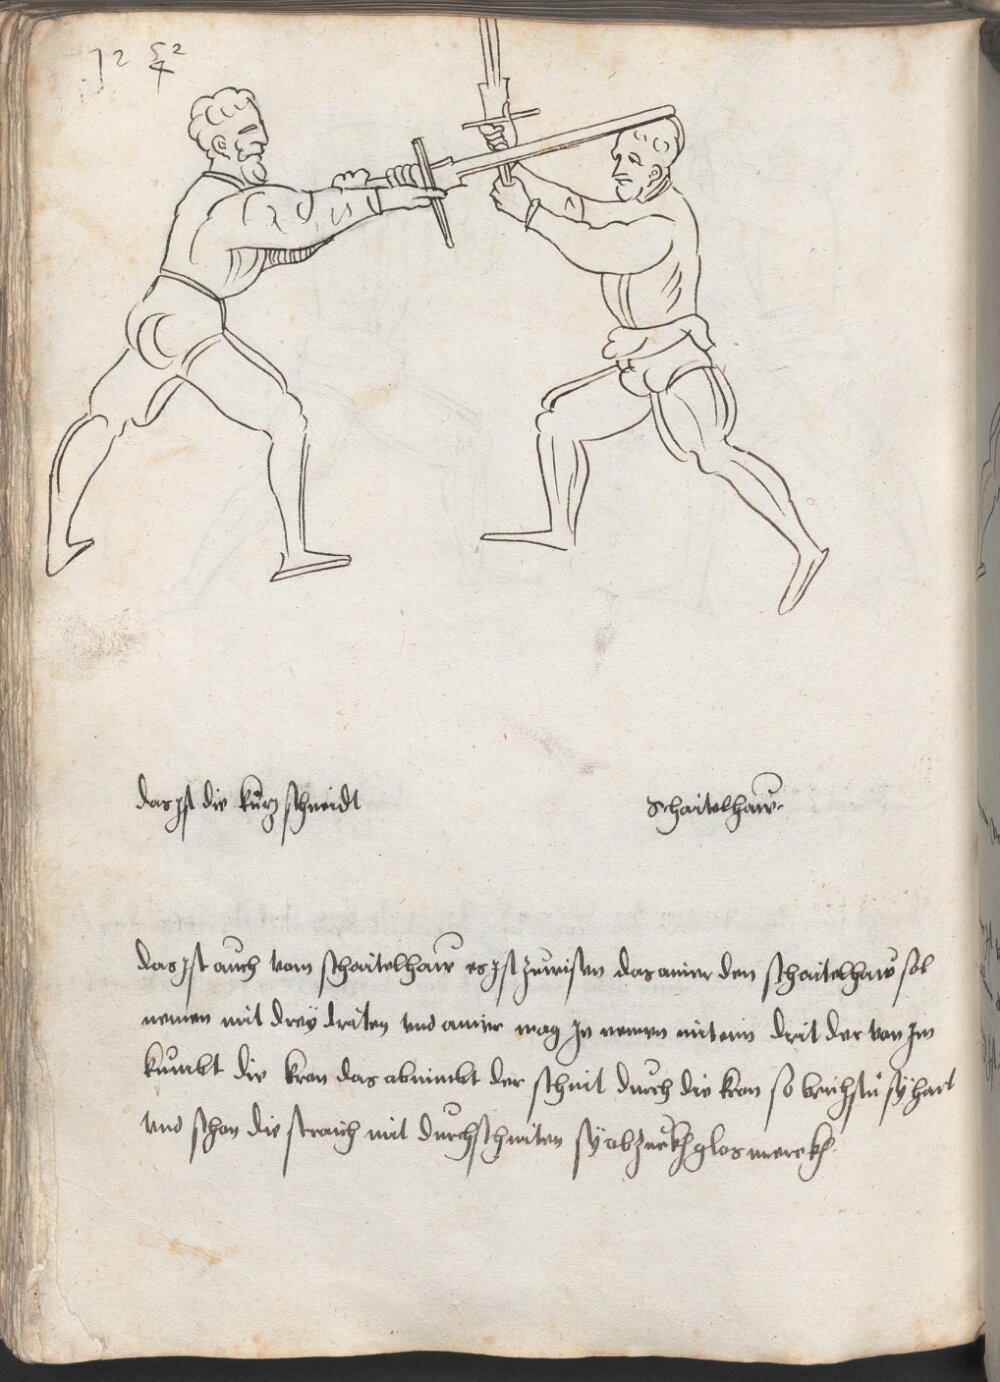 12 52
4
das ist die kurz schneidt
Schaitelhaw
das ist auch vom schaitelhaw es ist zuwissen das ainer den schaitelhaw sol
nemen mit dreÿ driten und ainer mag In nemen mit ein drit der von Im
kumbt die kron das abnimbt der schnit durch die kron so brichstu sÿ hart
und schon die straich mit durchschniten sÿ abzeuch glos merckh